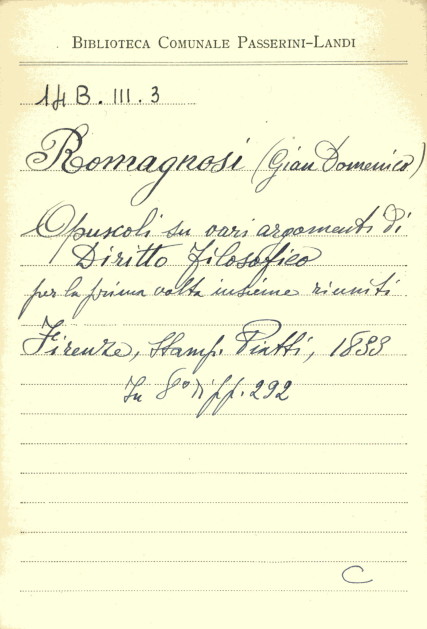 BIBLIOTECA COMUNALE PASSERINI-LANDI
14 B. III. 3
Romagnosi (Gian Domenico)
Opuscoli su vari argomenti di
Diritto filosofico
per la prima volta insieme riuniti
Firenze, Stamp. Piatti, 1833
In 8° di pp. 292
C